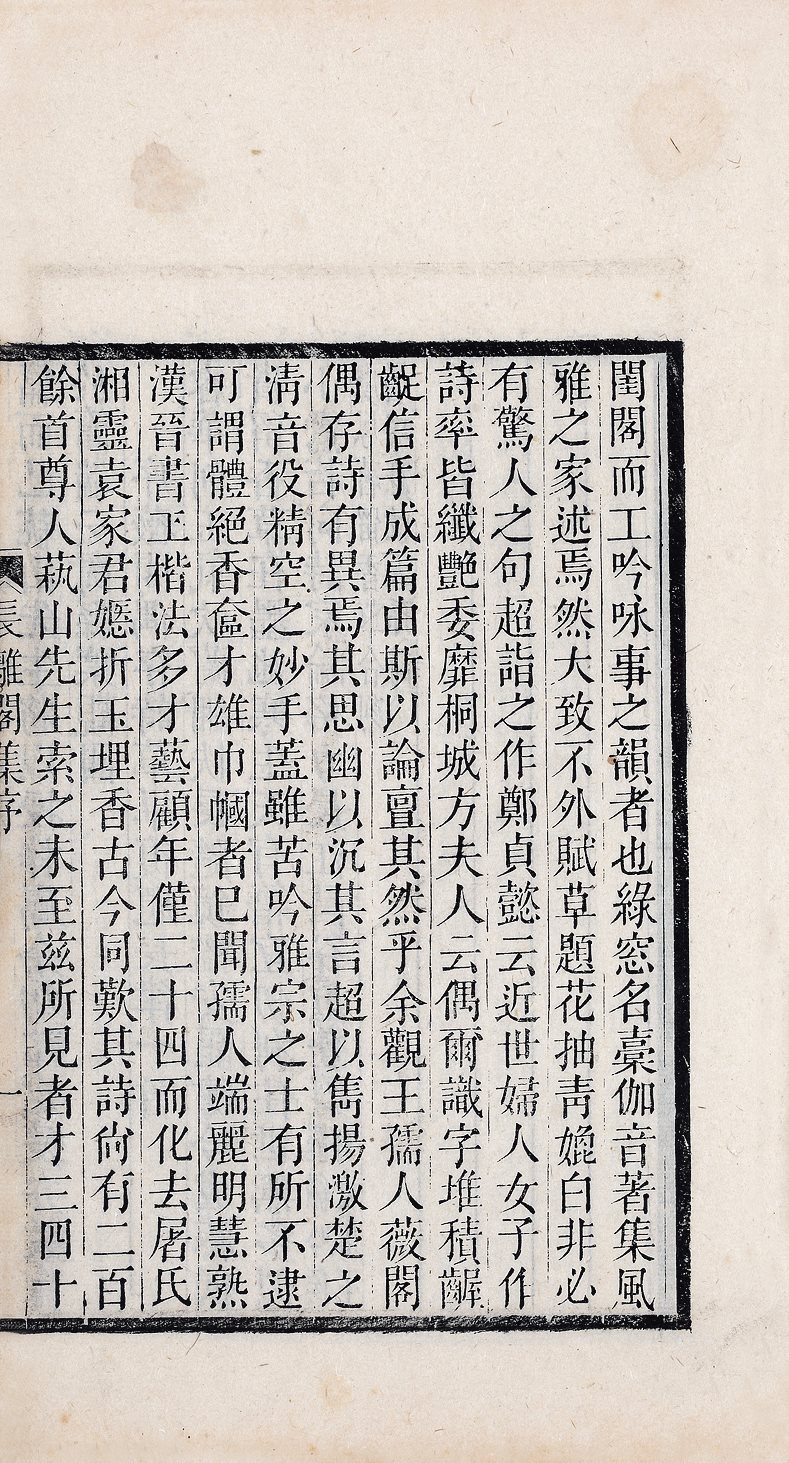 閨閣而工吟咏事之韻者也綠窓名藁伽音著集風
雅之家述焉然大致不外賦草題花抽靑媲白非必
有驚人之句超詣之作鄭貞懿云近世婦人女子作
詩率皆纖艷委靡桐城方夫人云偶爾識字堆積齷
齪信手成篇由斯以論亶其然乎余觀王孺人薇閣
偶存詩有異焉其思幽以沉其言超以雋揚激楚之
淸音役精空之妙手葢雖苦吟雅宗之士有所不逮
可謂體絕香奩才雄巾幗者巳聞孺人端麗明慧熟
漢晉書㠪楷法多才藝顧年僅二十四而化去屠氏
湘靈袁家君嬺折玉埋香古今同歎其詩尙有二百
餘首尊人蓺山先生索之未至兹所見者才三四十
長離閣集序
一